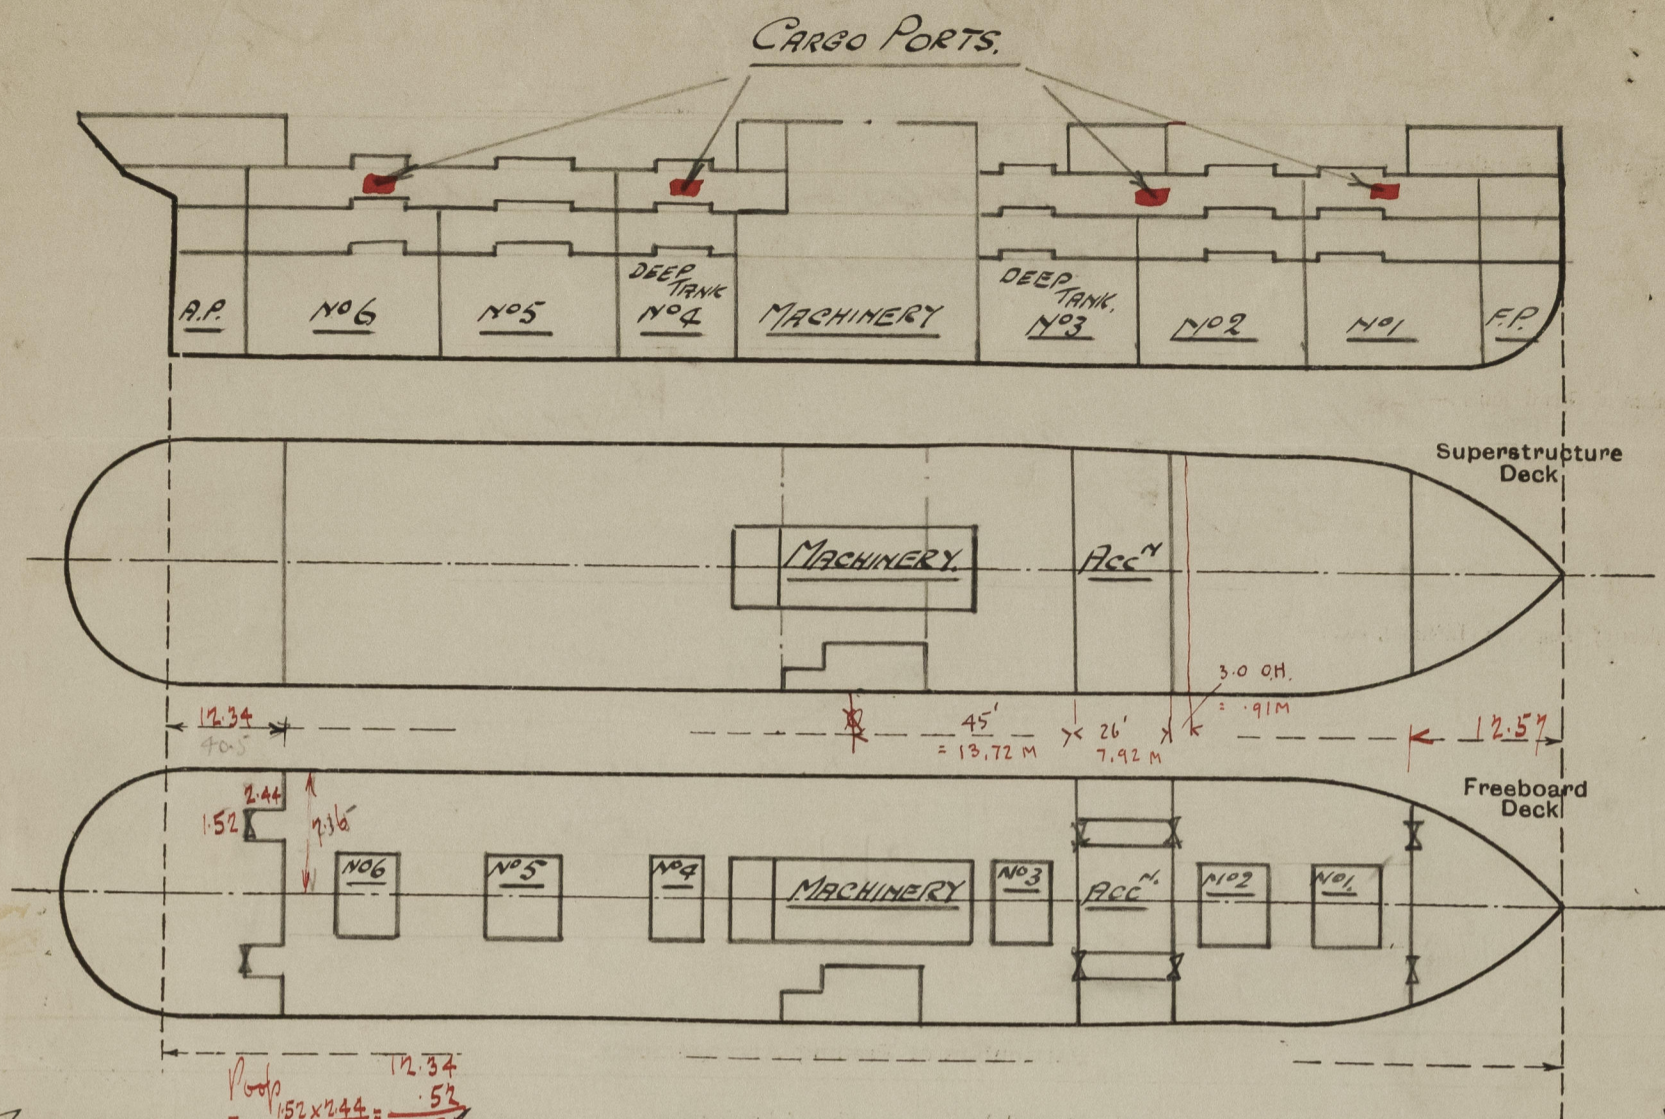 CARGO PORTS.
A.P.
No6
No5
DEEP
TANK
No4
MACHINERY
DEEP
TANK.
No3
No2
No1
F.P.
Superstructure
Deck
MACHINERY.
Accᴺ
3.0 O.H.
= .91M
12.34
40.5
45'
= 13.72 M
26'
7.92 M
12.57
Freeboard
Deck
2.44
1.52
7.36
No6
No5
No4
MACHINERY
No3
Accᴺ.
No2
No1.
Poop
12.34
.52
1.52 x 2.44 =